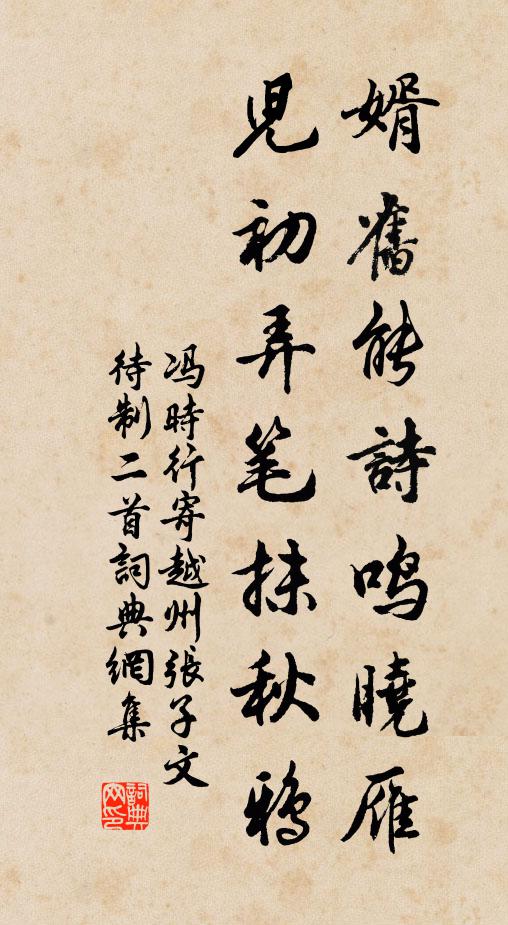 婿舊能詩鳴曉雁
兒初弄笔抹秋鴉
冯時行寄越州張子文
待制二首詞典網集
詞典网印